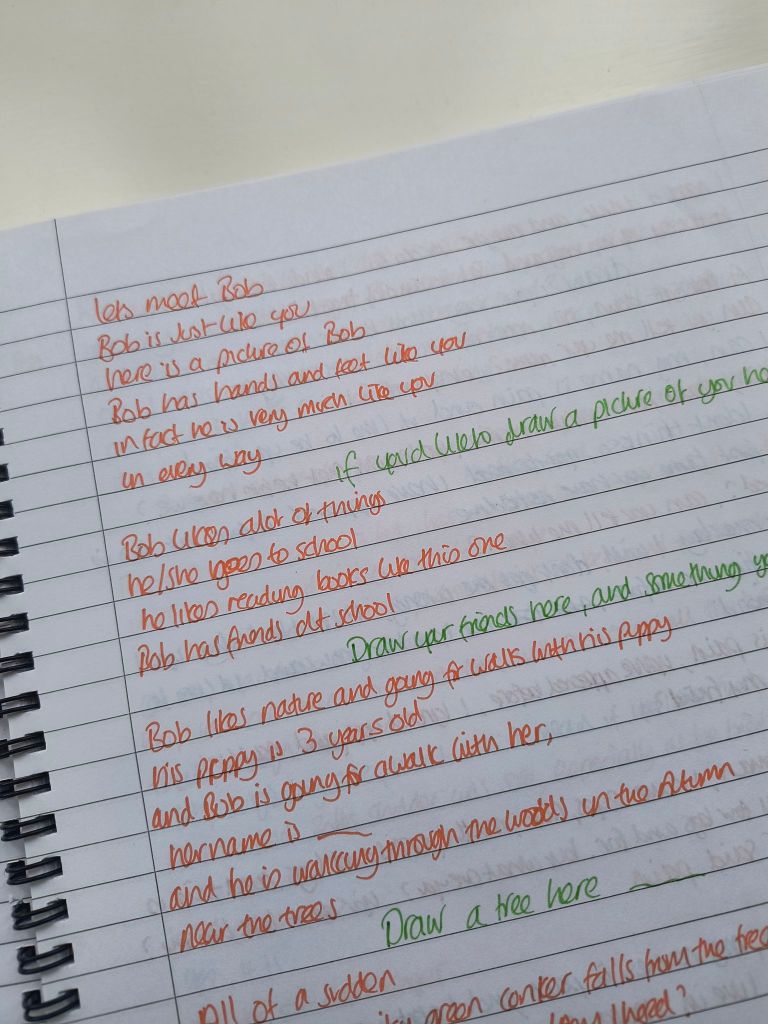 lets meet Bob
Bob is Just like you
here is a picture of Bob
Bob has hands and feet like you
in fact he is very much like you
in every way
if you'd like to draw a picture of you
Bob likes alot of things
he/she goes to school
he likes reading books like this one
Bob has friends at school
Draw your friends here, and something
Bob likes nature and going for walks with his puppy
his puppy is 3 years old
and Bob is going for a walk with her,
her name is
and he is walking through the woods in the Autumn
near the trees
Draw a tree here
All of a sudden
green conker falls from the tree